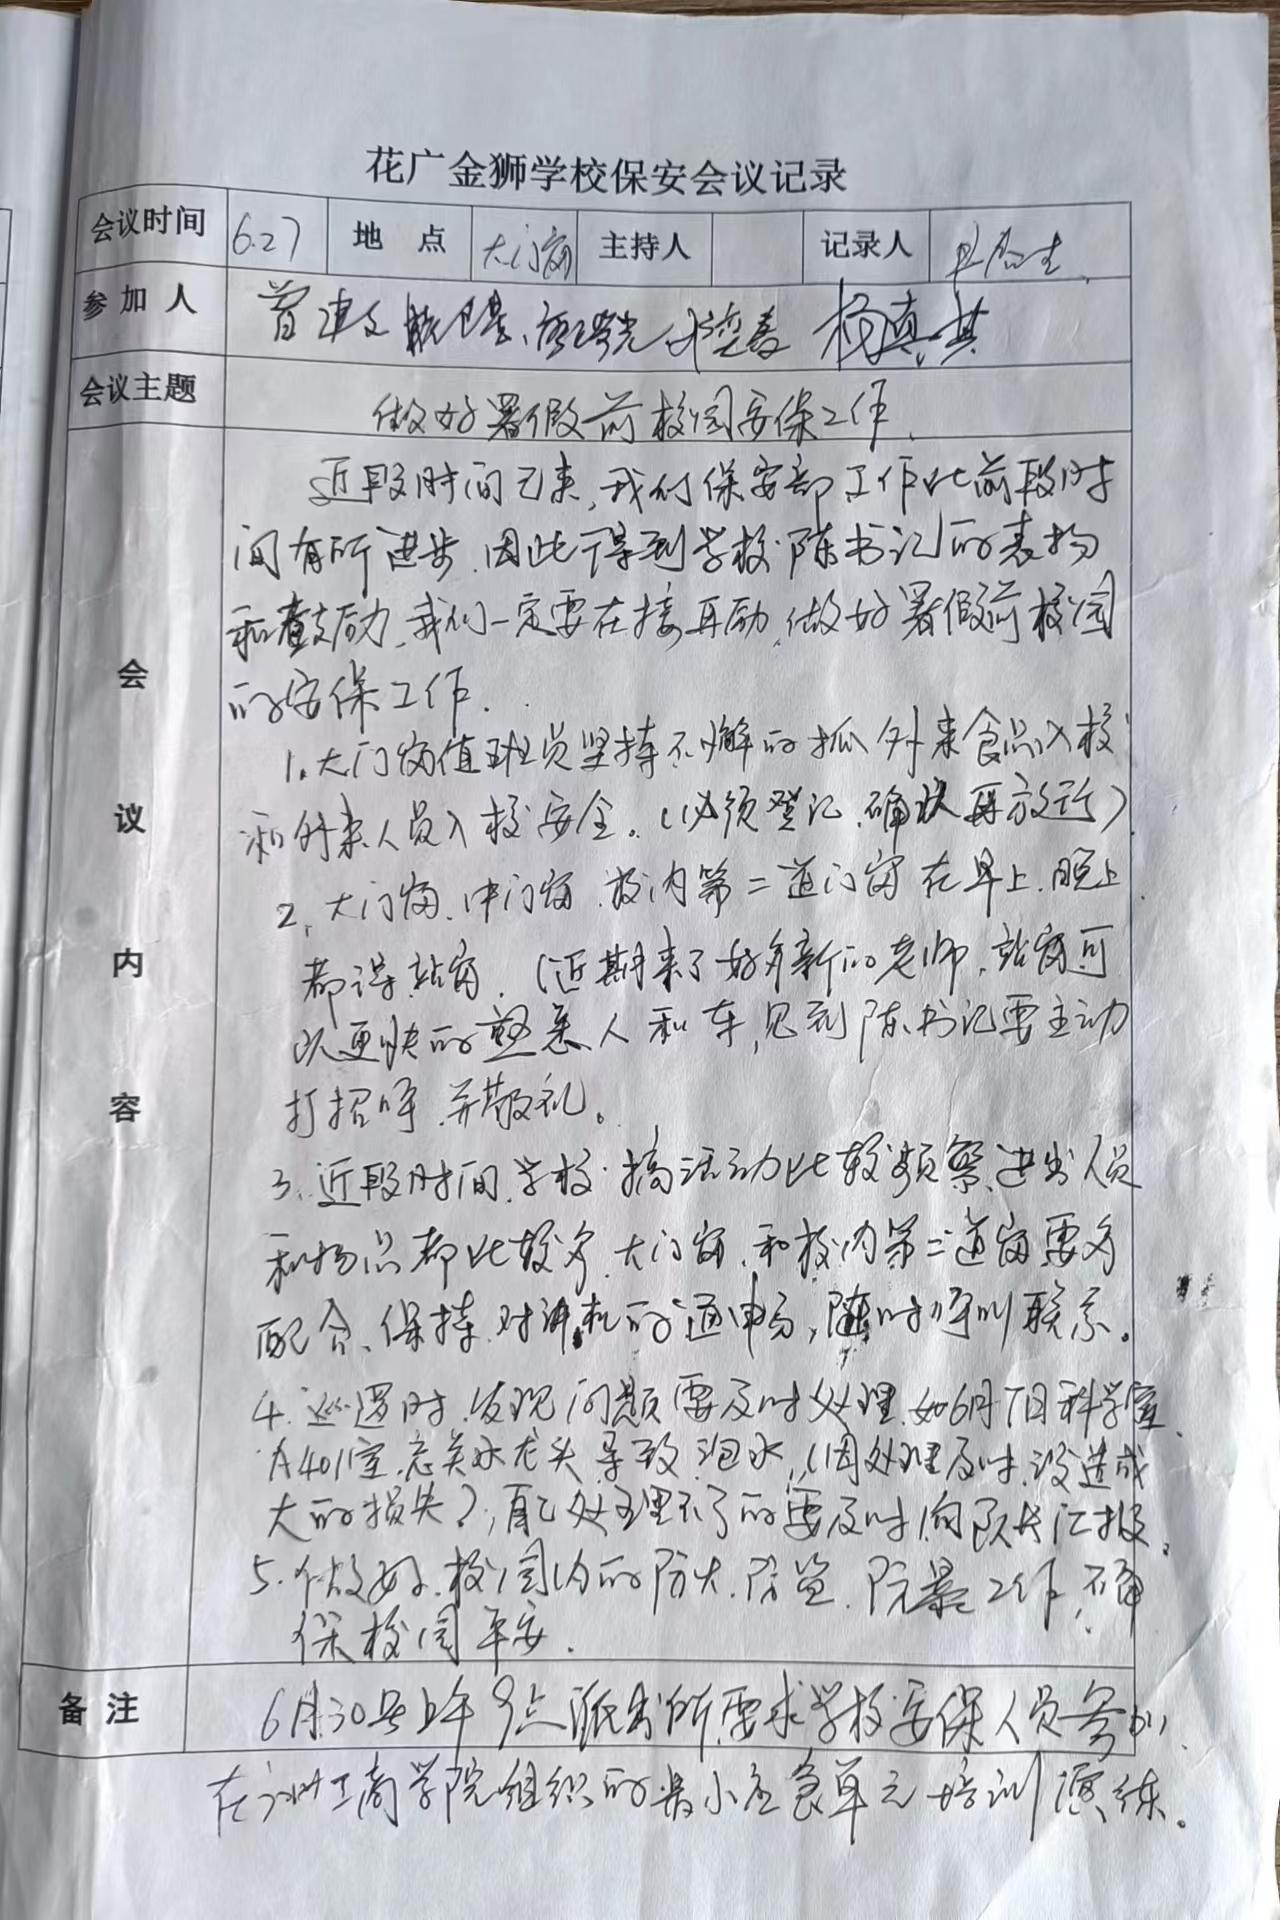 花广金狮学校保安会议记录
会议时间 6.27 地点 大门岗 主持人 记录人
参加人 曾建文 杨真其
会议主题 做好暑假前校园安保工作.
近段时间已来,我们保安部工作比前段时
间有所进步.因此得到学校陈书记的表扬
和鼓励,我们一定要在接再励,做好暑假前校园
的安保工作.
会议内容
1.大门岗值班员坚持不懈的抓外来食品入校
和外来人员入校安全。(必须登记.确认再放行)
2.大门岗.中门岗.校内第二道门岗在早上.晚上
都得站岗.(近期来了好多新的老师,站岗可
以更快的熟悉人和车,见到陈书记要主动
打招呼.并敬礼。
3.近段时间.学校搞活动比较频繁,进出人员
和物品都比较多.大门岗.和校内第二道岗要多
配合、保持.对讲机的通畅,随时呼叫联系。
4.巡逻时.发现问题要及时处理.如6月7日科学室.
A401室.忘关水龙头.导致泡水,(因处理及时.没造成
大的损失),自己处理不了的要及时向队长汇报.
5.做好.校园内的防火.防盗.防暴工作,确
保校园平安.
备注 6月30号上午9点派出所要求学校安保人员参加
在 工商学院组织的最小应急单元培训演练。